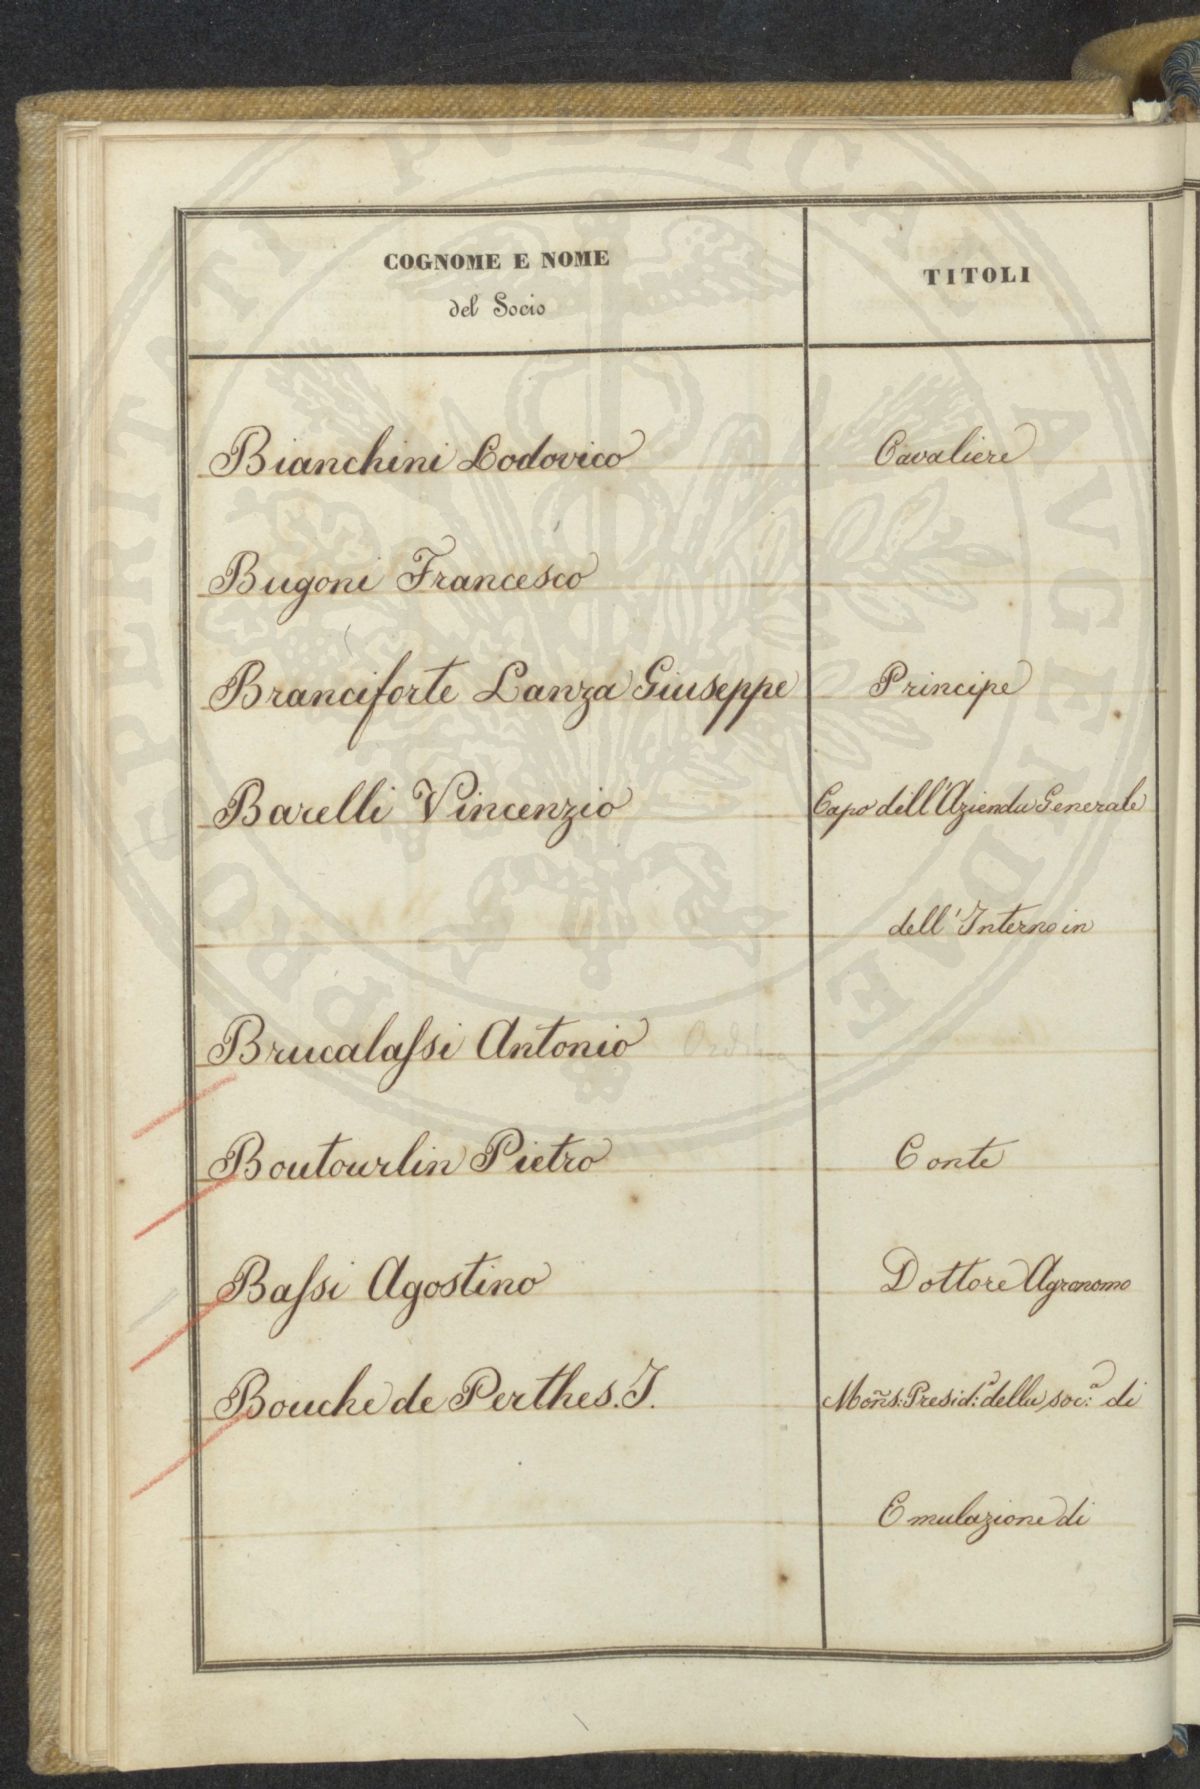 COGNOME E NOME
del Socio
TITOLI
Bianchini Lodovico Cavaliere
Bugoni Francesco
Branciforte Lanza Giuseppe Principe
Barelli Vincenzio Capo dell'Azienda Generale
dell'Interno in
Brucalaſsi Antonio
Boutourlin Pietro Conte
Baſsi Agostino Dottore Agronomo
Bouche de Perthes. J. Mon̄s: Presid:ᵉ della soc:ᵃ di
Emulazione di
PROSPERITATI PVBLICAE AVGENDAE